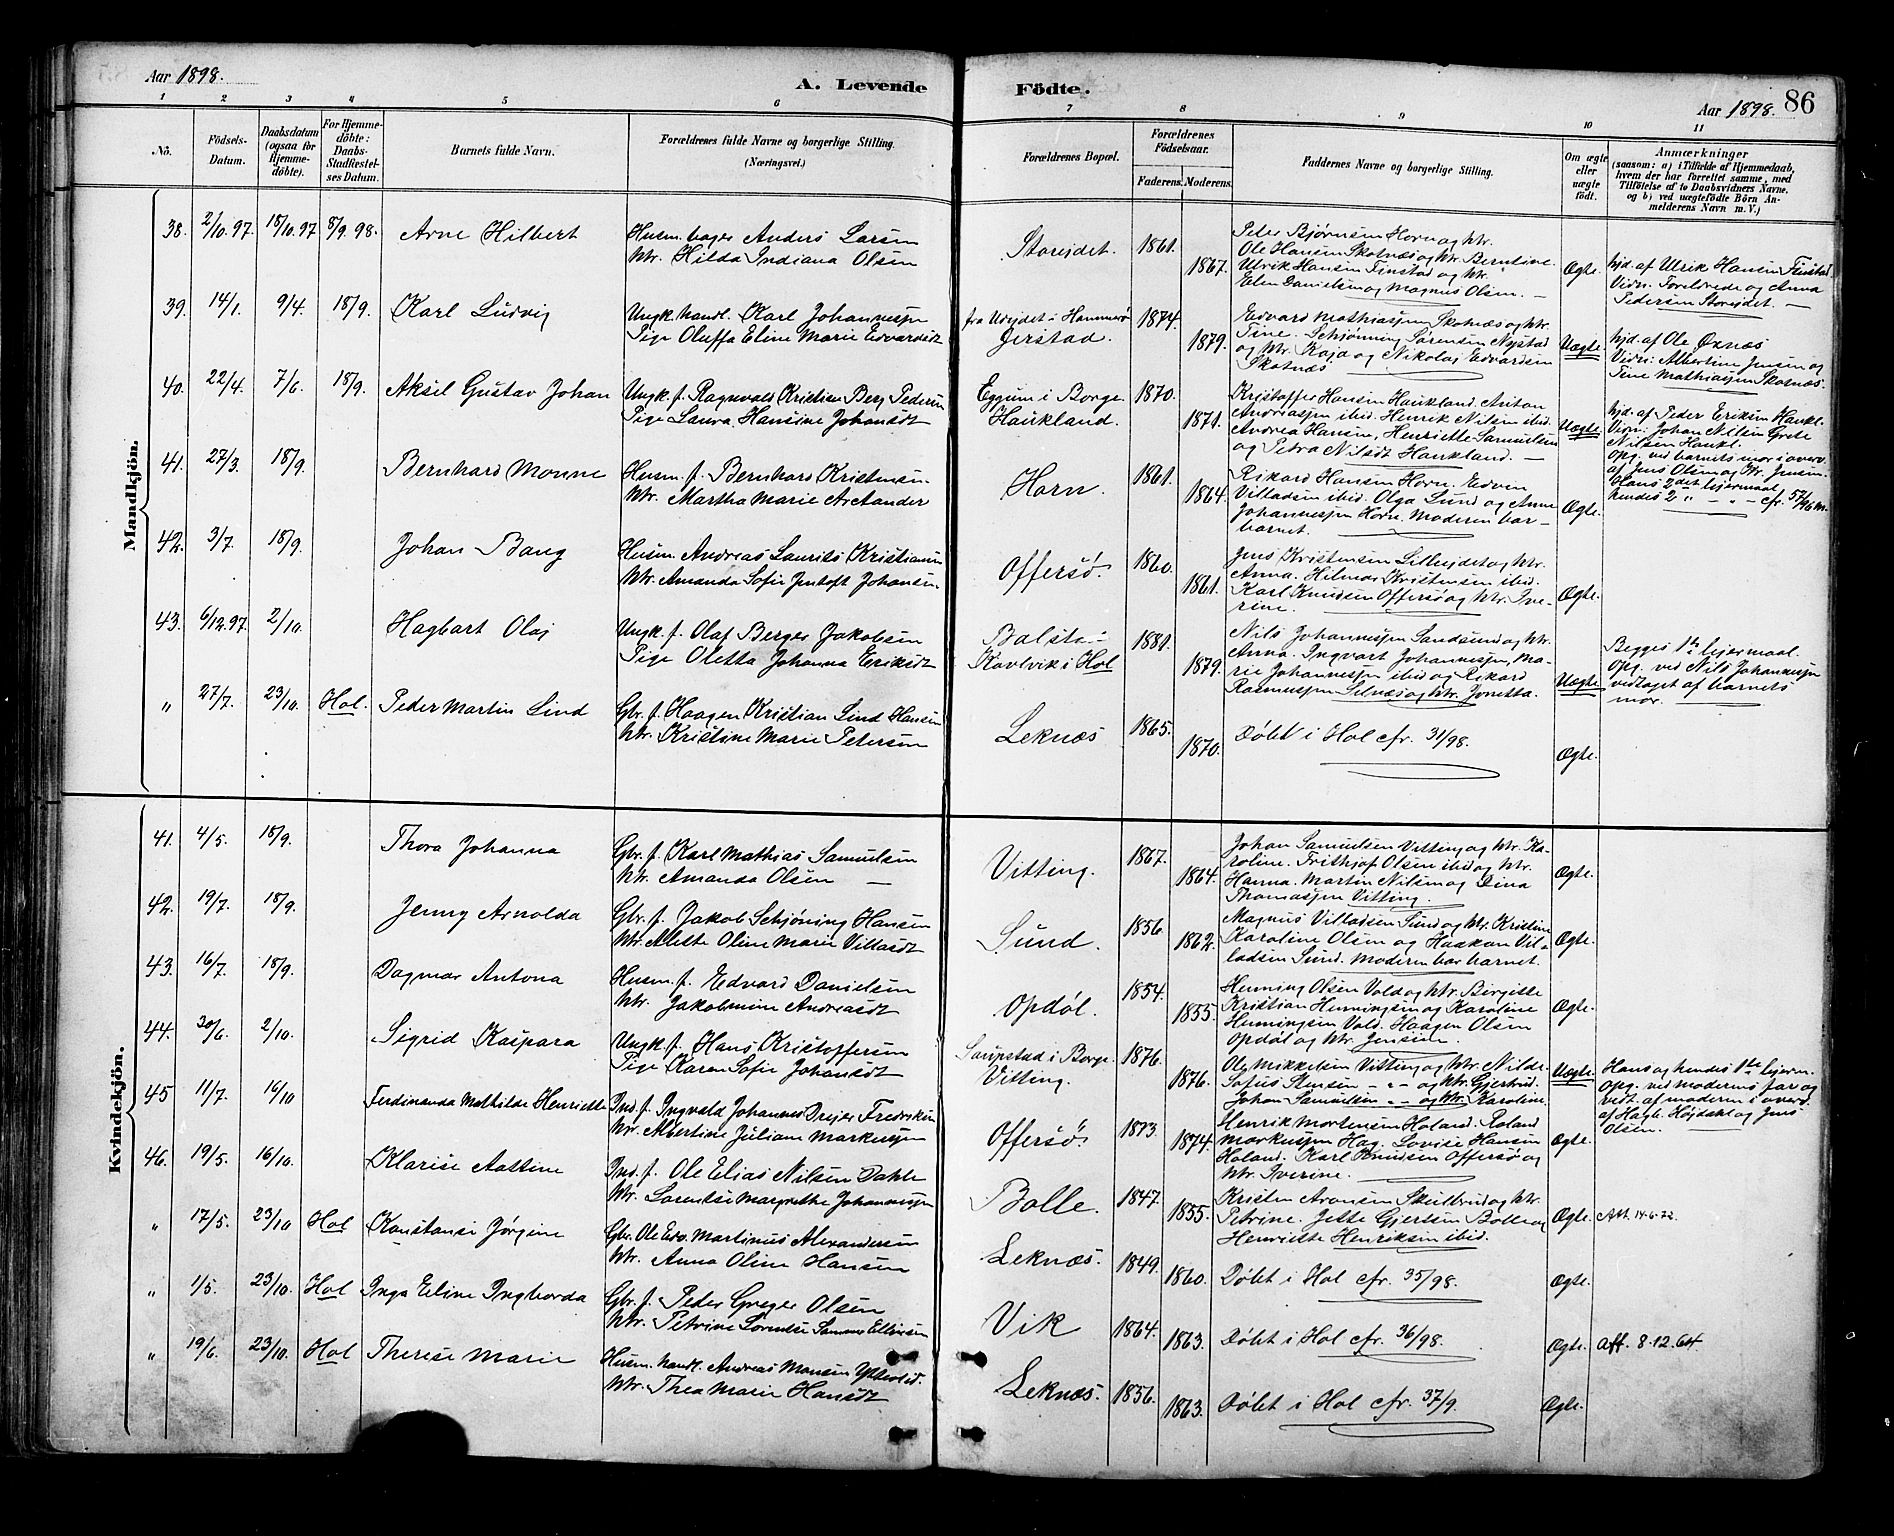 Aar 1898.
A. Levende Födte.
Aar 1898. 86
1 2 3 4 5 6 7 8 9 10 11
No.
Födsels-Datum.
Daabsdatum (ogsaa for Hjemmedöbte).
For Hjemmedöbte: Daabs-Stadfæstelses Datum.
Barnets fulde Navn.
Forældrenes fulde Navne og borgerlige Stilling. (Næringsvei.)
Forældrenes Bopæl.
Forældrenes Födselsaar.
Faderens. Moderens.
Faddernes Navne og borgerlige Stilling.
Om ægte eller uægte født.
Anmærkninger
(saasom: a) i Tilfælde af Hjemmedaab, hvem der har forrettet samme, med Tilföielse af to Daabsvidners Navne, og b) ved uægtefödte Börn Anmelderens Navn m. V.)
Mandkjön.
38. 2/10.97. 18/10.97 8/9.98. Arne Hilbert
Husm. bager Anders Larsen
Htr. Hilda Indiana Olsen
Storeidet. 1861. 1867.
Peter Bjørnsen Horn og Htr.
Ole Hansen Skotnæs og Htr. Berntine.
Ulrik Hansen Finstad og Htr.
Elen Danielsen og Magnus Olsen.
Ægte.
hjd. af Ulrik Hansen Finstad
Vidn: Forældrede og Anna
Pedersen Storeidet.
39. 14/1. 9/4. 18/9. Karl Ludvig
Ungk. handl. Karl Johannesen
Pige Oluffa Eline Marie Edvardsdt
fra Uteidet i Hammerø
Jerstad. 1874. 1879.
Edvard Mathiassen Skotnæs og Htr.
Tine. Schjønning Sørensen Nystad
og Htr. Kaja og Nikolai Edvardsen
Skotnæs
Uægte
hjd. af Ole Øxnæs
Vidn: Albertine Jensen og
Tine Mathiassen Skotnæs.
40. 22/4. 7/6. 18/9. Aksel Gustav Johan
Ungk. f. Ragnvald Kristian Berg Pedersen
Pige Laura Hansine Johansdt
Eggum i Borge.
Haukland. 1870. 1871.
Kristoffer Hansen Haukland. Anton
Andreassen ibid. Henrik Nilsen ibid.
Andrea Hansen, Henriette Samuelsen
og Petra Nilsdt Haukland.
Uægte
hjd. af Peder Eriksen Haukl.
Vidn: Johan Nilsen Grete
Nilsen Haukl.
Opg. ved barnets mor i overv.
af Jens Olsen og Htr. Jensen
Hans 2det leiermaal
hendes 2 " - " - cfr. 57/96 m.
41. 27/3. 18/9. Bernhard Monne
Husm. f. Bernhard Kristensen.
Htr. Martha Marie Arctander
Horn. 1861. 1864.
Rikard Hansen Horn. Edvin
Villadsen ibid. Olga Lund og Anne
Johannessen Horn. Moderen bar
barnet.
Ægte.
42. 3/7. 18/9. Johan Bang
Husm. Andreas Laurits Kristiansen
Htr. Amanda Sofie Jentoft Johansen.
Offersø. 1860. 1861.
Jens Kristensen Lilleeidet og Htr.
Anna. Hilmar Kristensen ibid.
Karl Knudsen Offersø og Htr. Iverine.
Ægte.
43. 6/12.97. 2/10. Hagbart Olaf
Ungk. f. Olaf Berger Jakobsen
Pige Oletta Johanna Eriksdt
Balstad
Kavlvik i Hol 1881. 1879.
Nils Johannessen Sandsund og Htr.
Anna. Ingvart Johannessen, Marie Johannessen ibid og Rikard
Rasmussen Selnæs og Htr. Jonetta.
Uægte
Begges 1te leiermaal.
Opg. ved Nils Johannessen
vedtaget af barnets
mor.
" 27/7. 23/10. Hol. Peder Martin Lind
Gbr. f. Haagen Kristian Lind Hansen
Htr. Kristine Marie Petersen
Leknæs 1865. 1870.
Døbt i Hol cfr. 31/98.
Ægte.
Kvindekjön.
41. 4/5. 18/9. Thora Johanna
Gbr. f. Karl Mathias Samuelsen
Htr. Amanda Olsen
Vitting. 1867. 1864.
Johan Samuelsen Vitting og Htr. Karoline. Frithjof Olsen ibid og Htr.
Hanna. Martin Nilsen og Dina
Thomassen Vitting.
Ægte.
42. 19/7. 18/9. Jenny Arnolda
Gbr. f. Jakob Schjøning Hansen
Htr. Alette Oline Marie Villasdt
Sund. 1856. 1862.
Magnus Villadsen Sund og Htr. Kristine
Karoline Olsen og Haakon Villadsen Sund. Moderen bar barnet.
Ægte.
43. 16/7. 18/9. Dagmar Antona
Husm. f. Edvard Danielsen
Htr. Jakobmine Andreasdt
Opdøl. 1854. 1855.
Henning Olsen Vold og Htr. Birgitte
Kristian Henningsen og Karoline
Henningsen Vold. Haagen Olsen
Opdøl og Htr. Jensine.
Ægte.
44. 30/6. 2/10. Sigrid Kaspara
Ungk. f. Hans Kristoffersen
Pige Karen Sofie Johansdt
Saupstad i Borge.
Vitting. 1876. 1876.
Ole Mikkelsen Vitting og Htr. Nilde
Sofus Stensen - " - og Htr. Gjertrud.
Johan Samuelsen - " - og Htr. Karoline.
Uægte
Hans og hendes 1te leierm.
Opg. ved moderens far og
vedt. af moderen i overv.
af Hagb. Højdahl og Jens
Olsen.
45 11/7. 16/10 Ferdinanda Mathilde Henriette
Ind. f. Ingvald Johannes Dreier Fredriksen
Htr. Albertine Juliane Markussen
Offersø 1873. 1874.
Henrik Mortensen Holand. Roland
Markussen Hag. Lovise Hansen
Holand. Karl Knudsen Offersø og
Htr. Iverine.
Ægte
46. 19/5. 16/10. Klarise Aattine
Ind. f. Ole Elias Nilsen Dahle
Htr. Lorentse Margrethe Johannessen
Bolle. 1847. 1855.
Kristen Aronsen Skullbru og Htr.
Petrine. Jette Gjertsen Bolle og
Henriette Henriksen ibid.
Ægte.
Att. 14-6-72.
" 17/5. 23/10 Hol Konstanse Jørgine
Gbr. Ole Edv. Martinus Alexandersen
Htr. Anna Oline Hansen
Leknæs. 1849. 1860.
Døbt i Hol cfr. 35/98.
Ægte.
" 1/5. 23/10. Hol Inga Eline Ingborda
Gbr. f. Peder Greger Olsen
Htr. Petrine Lorentse Ellingsen
Vik 1864. 1863.
Døbt i Hol cfr. 36/98.
Ægte.
Att. 8.12.64
" 19/6. 23/10. Hol Therese Marie
Husm. handl. Andreas Monsen
Htr. Thea Marie Hansdt
Leknæs. 1856. 1863.
Døbt i Hol cfr. 37/9.
Ægte.